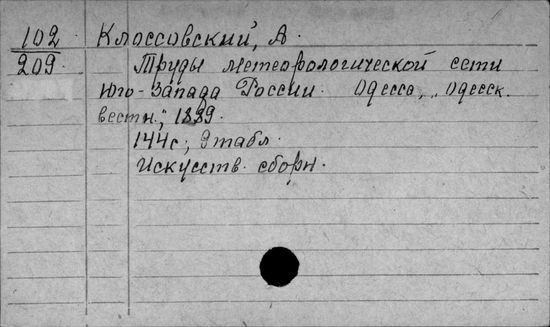 102 Клоссовский, А.
209 Труды метеорологической сети
Юго-Запада России. Одесса, "Одесск.
вестн.", 1889.
144с; 9 табл.
Искусств. сборн.